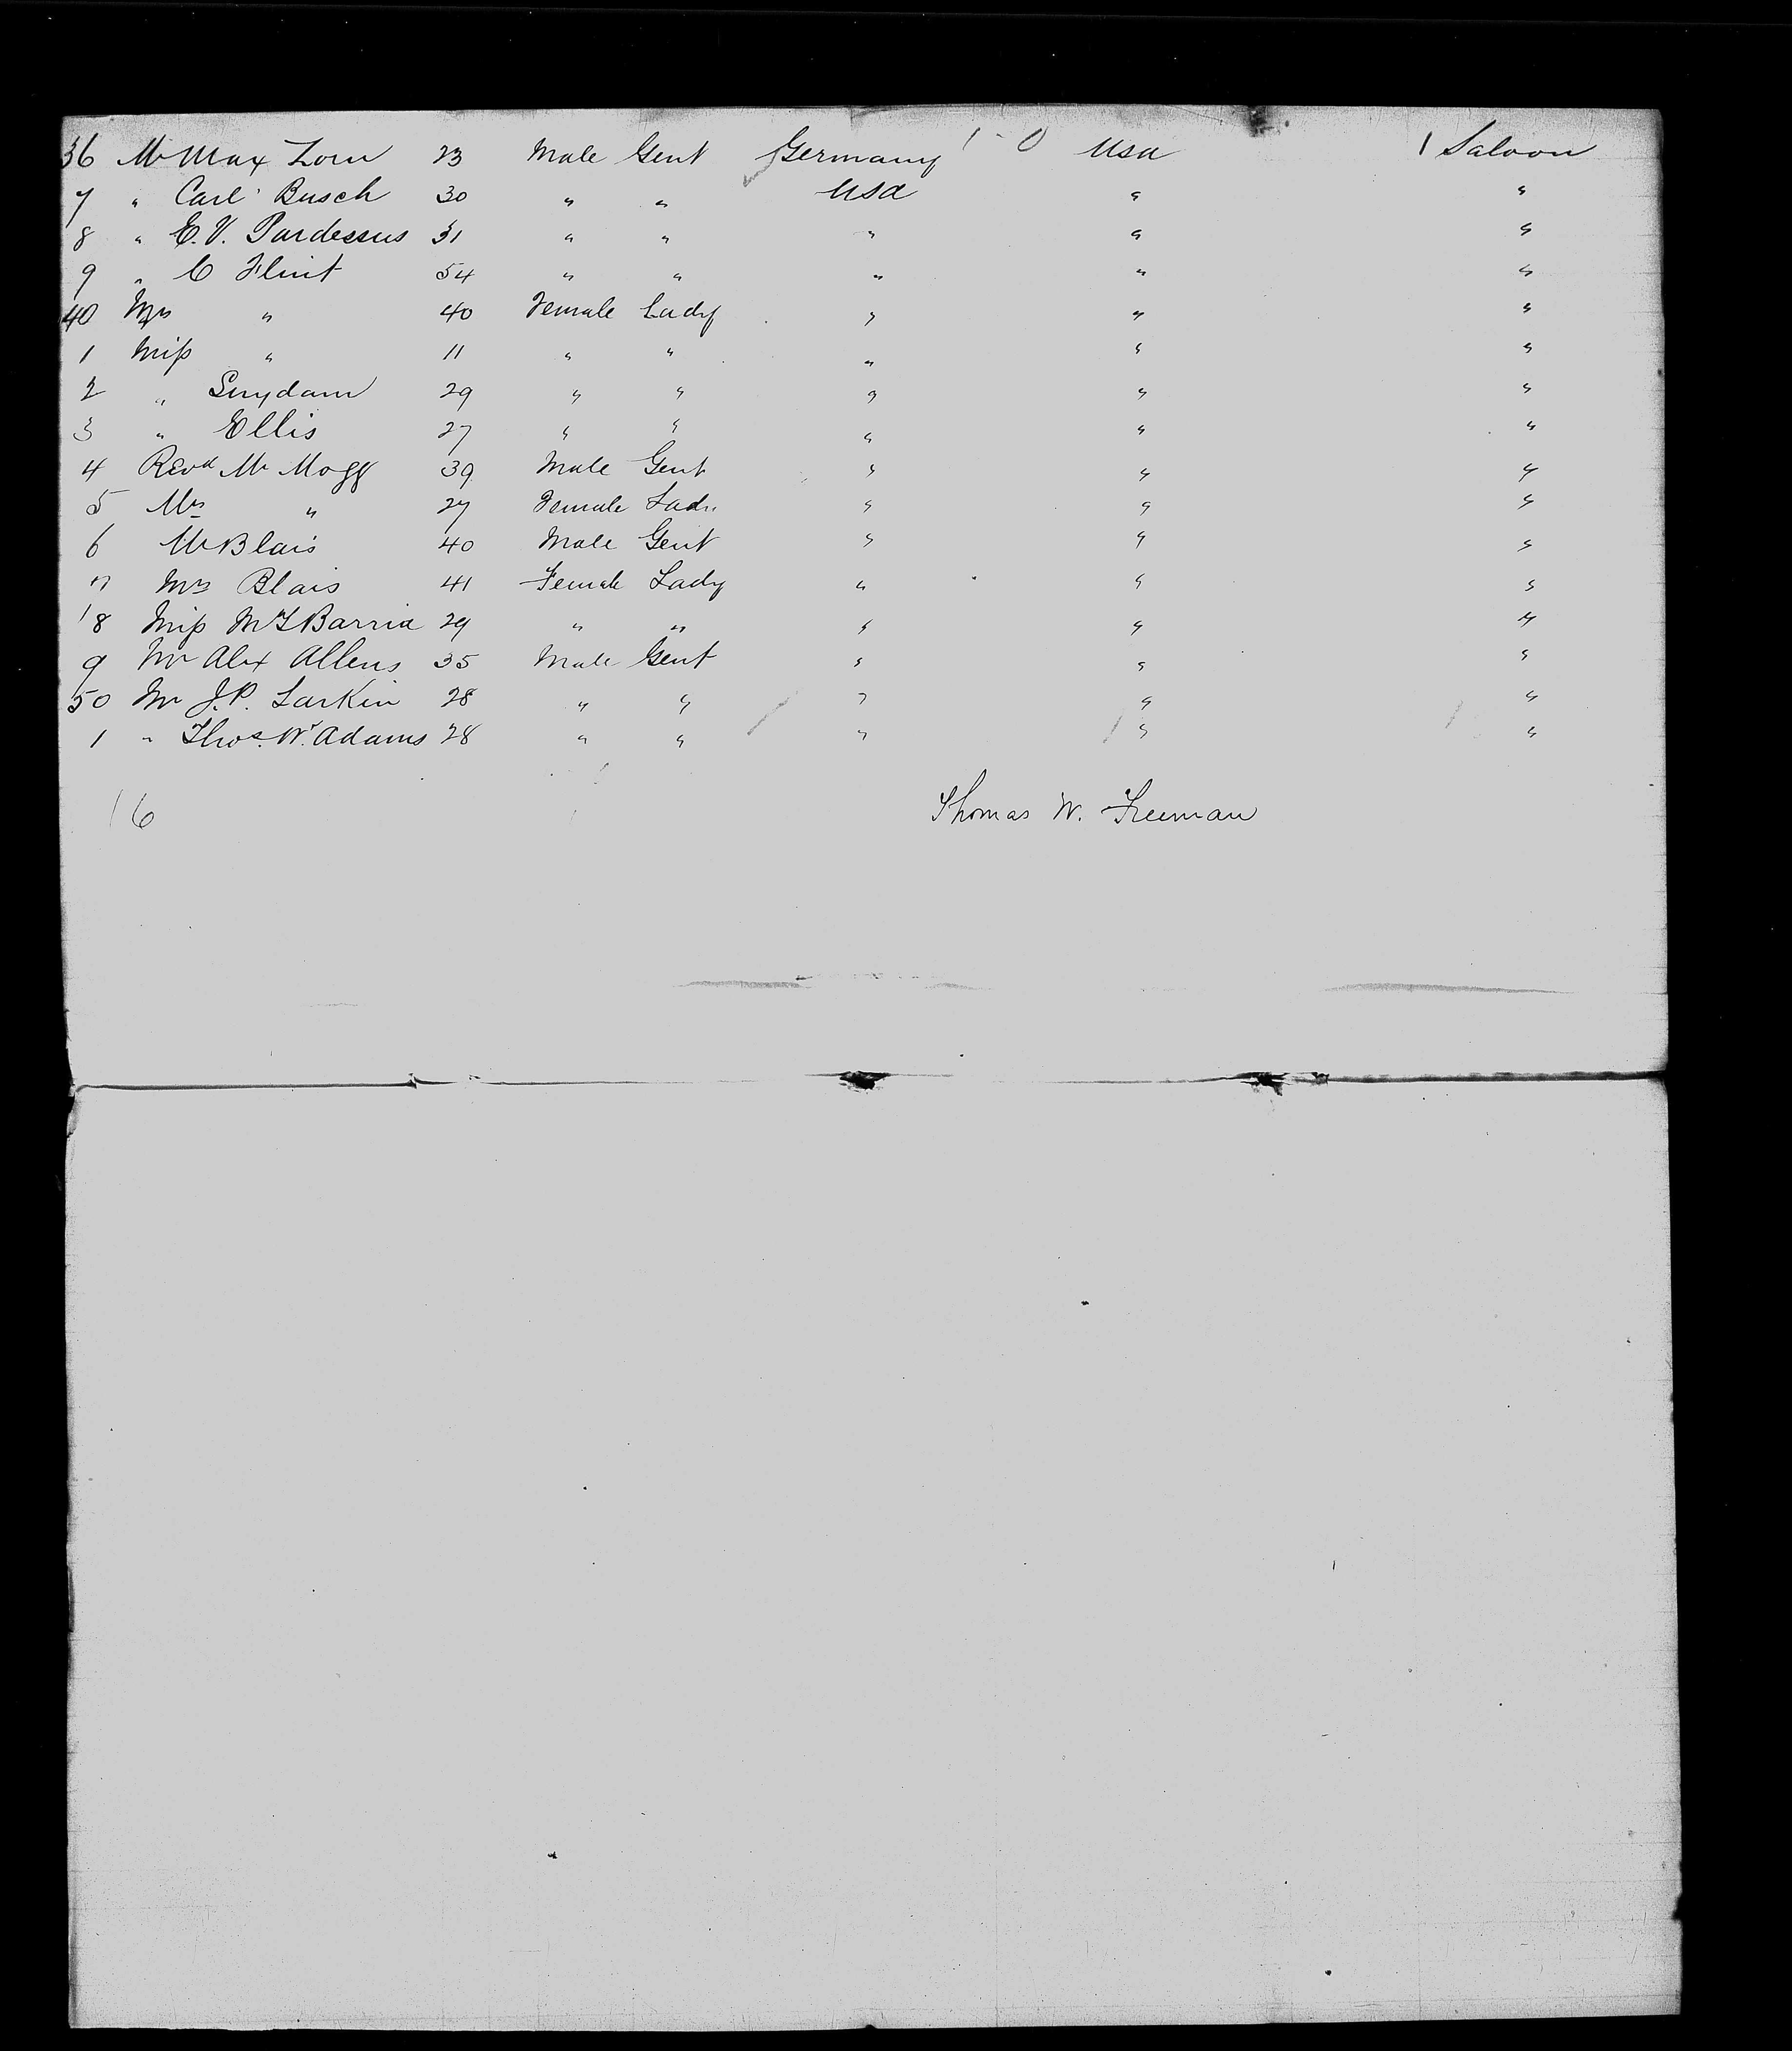 36 Mr Max Zorn 23 Male Gent Germany 1 - 0 Usa 1 Saloon
7 " Carl Busch 30 " " Usa " "
8 " E. V. Pardessus 31 " " " " "
9 " C Flint 54 " " " " "
40 Mrs " 40 Female Lady " " "
1 Miss " 11 " " " " "
2 " Suydam 29 " " " " "
3 " Ellis 27 " " " " "
4 Revd Mr Mogg 39 Male Gent " " "
5 Mrs " 27 Female Lady " " "
6 Mr Blais 40 Male Gent " " "
7 Mrs Blais 41 Female Lady " " "
8 Miss 29 " " " " "
9 Mr Alex Allens 35 Male Gent " " "
50 Mr J. P. Larkin 28 " " " " "
1 " Thos. W. Adams 28 " " " " "
16 Thomas W. Freeman